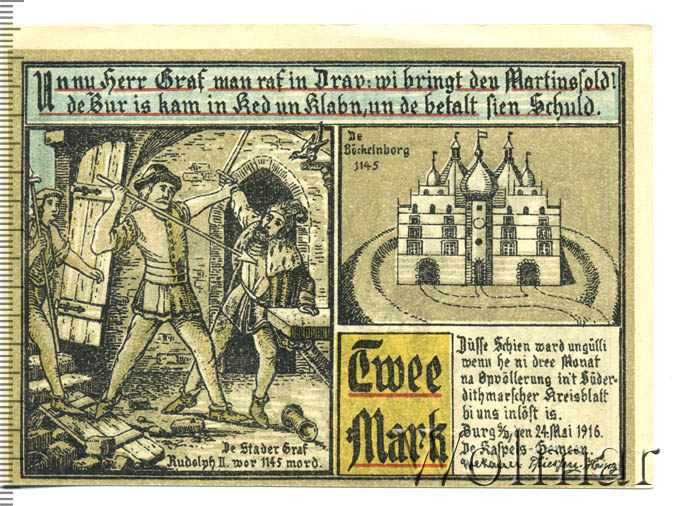 Un nu, Herr Graf man raf in Drav: wi bringt den Martinssold!
de Bur is kam in Ked un Klabn, un de betalt sien Schuld.
De
Böckelnborg
1145
De Stader Graf
Rudolph II. wor 1145 mord.
Twee
Mark
Düsse Schien ward ungülli
wenn he ni dree Monat
na Opvöllerung in't Süder-
dithmarscher Kreisblatt
bi uns inlöst is.
Burg S/D, den 24. Mai 1916.
De Kaspels-Gemeen.
Wolmar